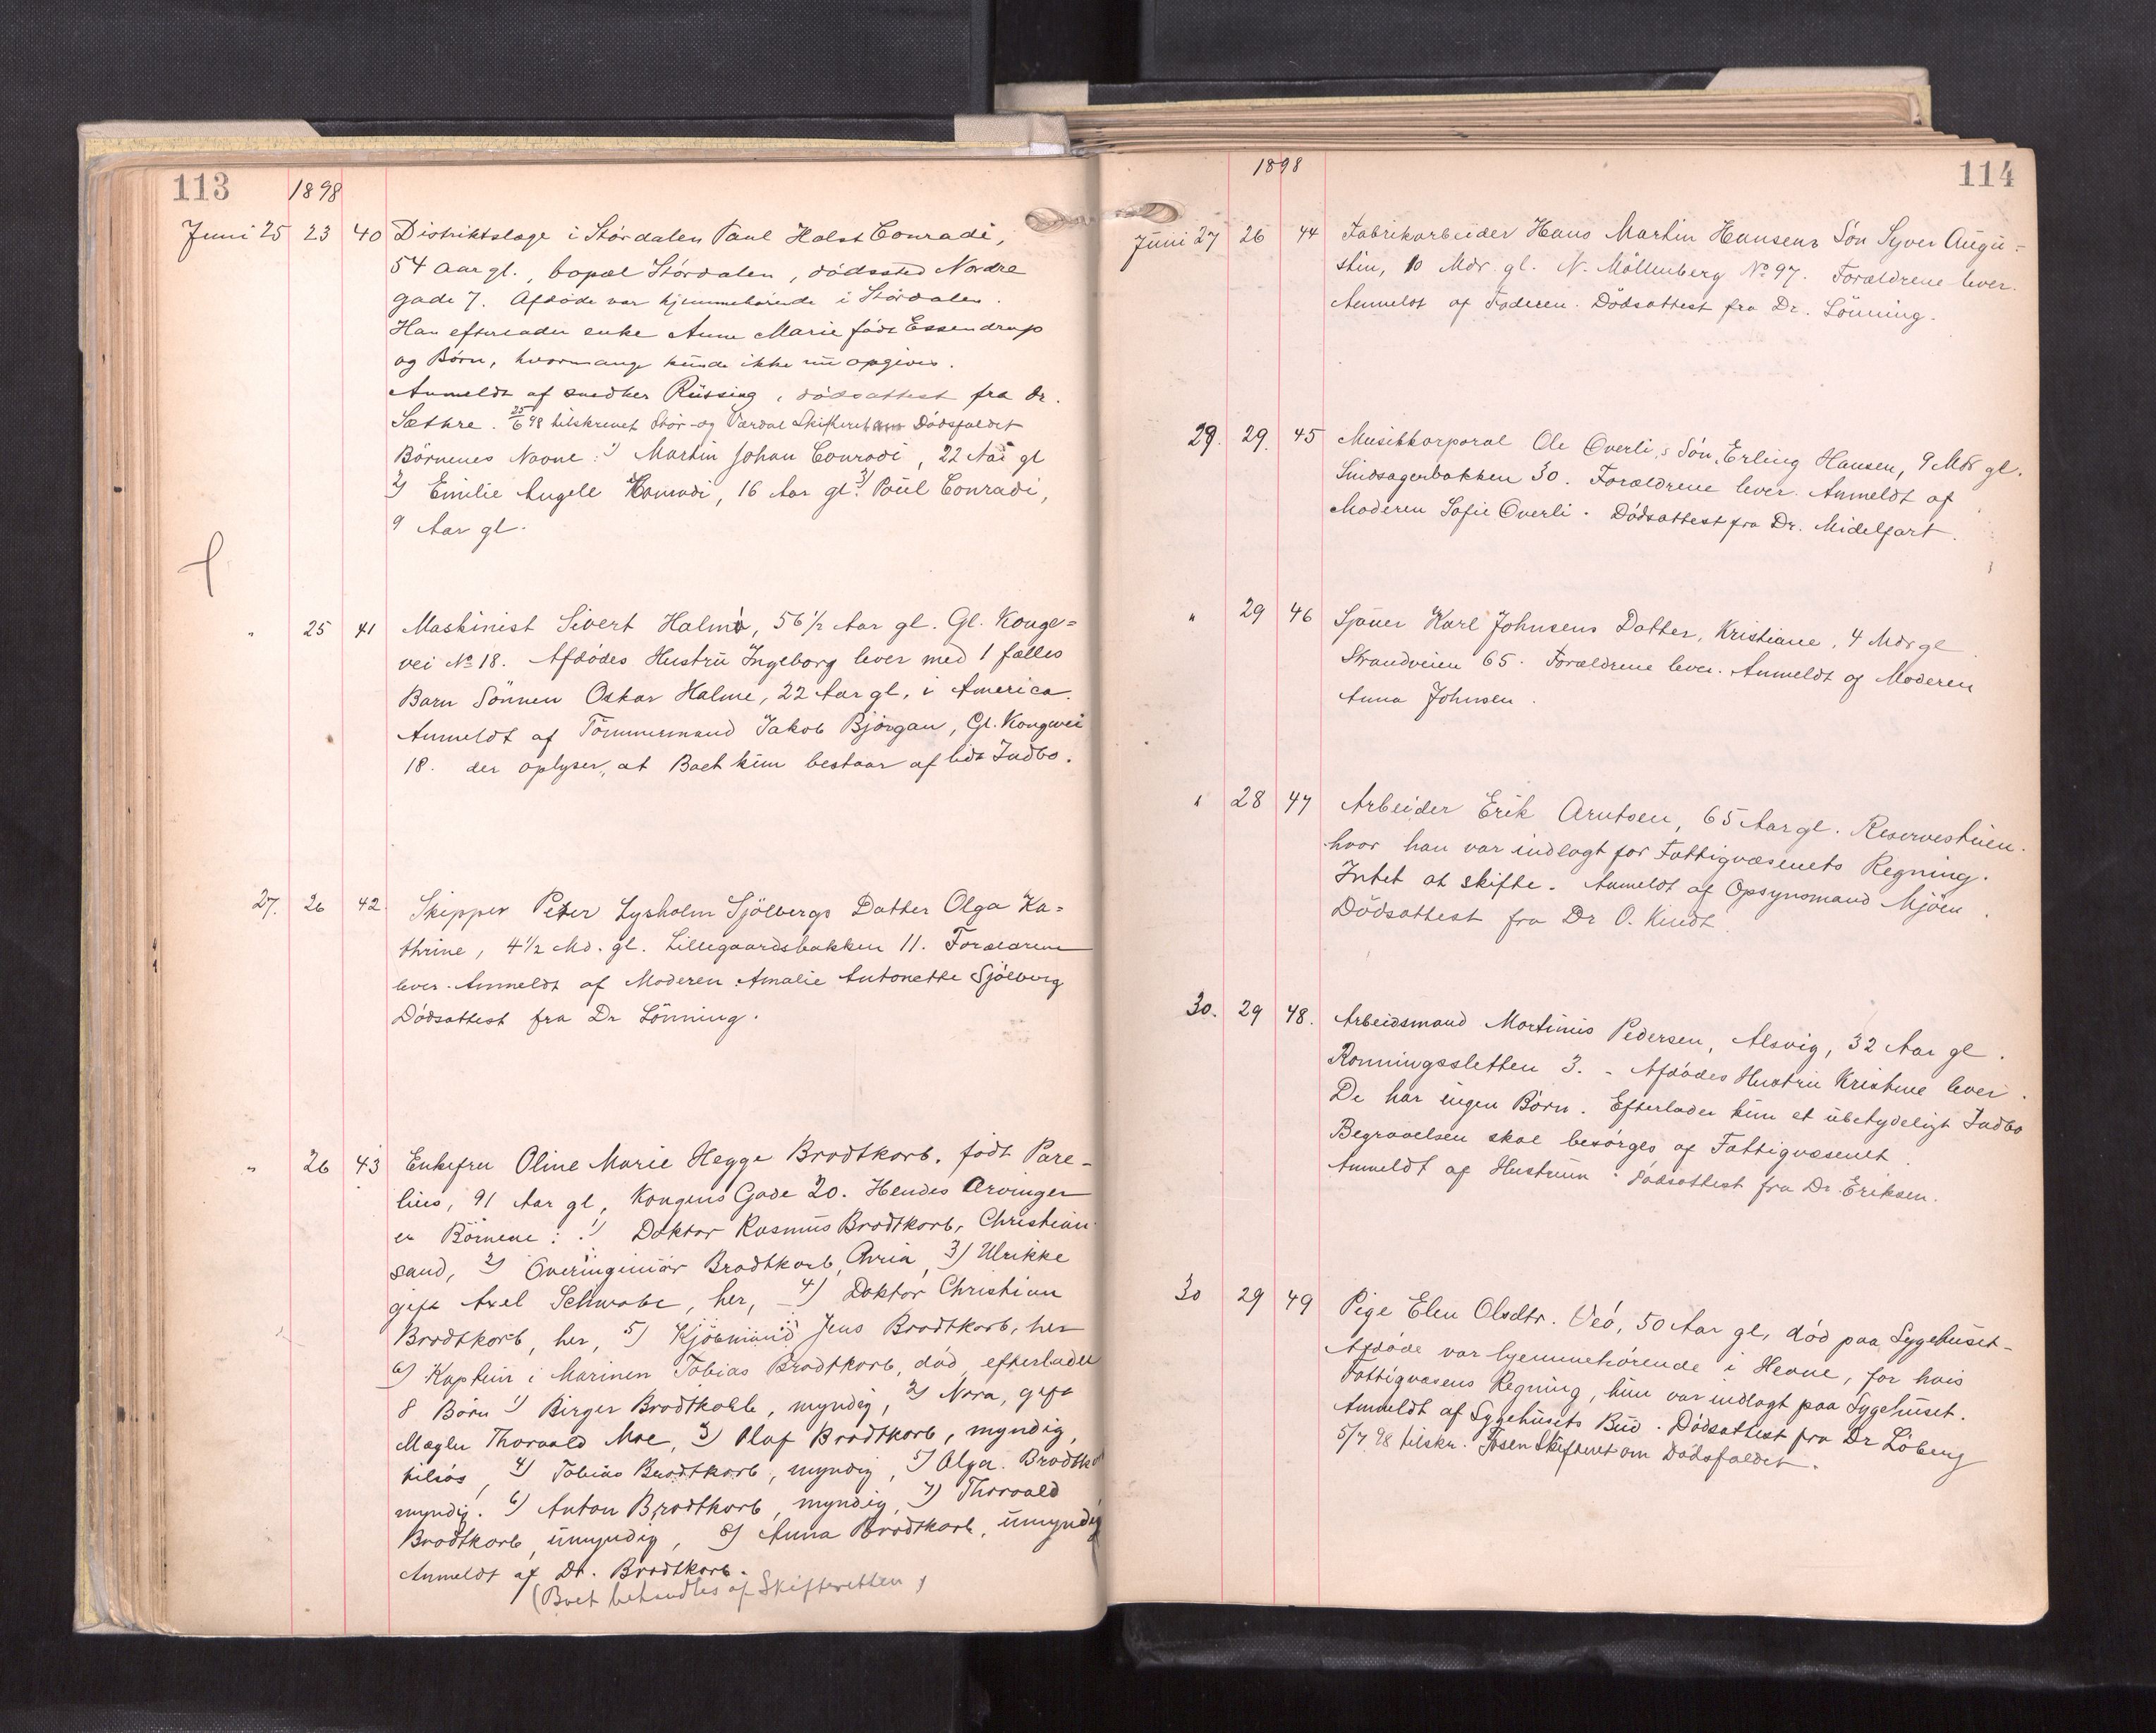 113
1898
Juni 25 23 40 Distriktslæge i Stördalen Paul Holst Conradi,
54 aar gl., bopæl Stördalen, dödssted Nordre
gade 7. Afdöde var hjemmehörende i Stördalen.
Han efterlader enke Anne Marie födt Essendrup
og Börn, hvormange kunde ikke nu opgives.
Anmeldt af snedker Rüssing, dödsattest fra Dr.
Sæthre. 25/6 98 tilskrevet Stör- og Værdal Skifteret om Dödsfaldet
Börnenes Navne: 1) Martin Johan Conradi, 22 Aar gl
2) Emilie Angell Conradi, 16 Aar gl. 3) Paul Conradi,
9 Aar gl.
" 25 41 Maskinist Sivert Halmö, 56 1/2 Aar gl. Gl. Konge=
vei No 18. Afdödes Hustru Ingeborg lever med 1 fælles
Barn Sönnen Oskar Halme, 22 Aar gl, i America.
Anmeldt af Tömmermand Jakob Björgan, Gl. Kongevei
18. der oplyser, at Boet kun bestaar af lidt Indbo.
27. 26 42. Skipper Peter Lysholm Sjölbergs Datter Olga Ka=
thrine, 4 1/2 Md. gl. Lillegaardsbakken 11. Forældrene
lever. Anmeldt af Moderen Amalie Antonette Sjölberg
Dödsattest fra Dr Lönning.
" 26 43 Enkefru Oline Marie Hegge Brodtkorb, födt Pare-
lius, 91 Aar gl, Kongens Gade 20. Hendes Arvinger
er Börnene: 1) Doktor Rasmus Brodtkorb, Christian
sand, 2) Overingeniör Brodtkorb, 3) Ulrikke
gift Axel Schwabe, her, 4) Doktor Christian
Brodtkorb, her, 5) Kjöbmand Jens Brodtkorb, her
6) Kaptein i Marinen Tobias Brodtkorb, död, efterlader
8 Börn 1) Birger Brodtkorb, myndig, 2) Nora, gift
Mægler Thorvald Moe, 3) Olaf Brodtkorb, myndig,
tilsös, 4) Tobias Brodtkorb, myndig, 5) Olga Brodtkorb
myndig. 6) Anton Brodtkorb, myndig, 7) Thorvald
Brodtkorb, umyndig, 8) Anna Brodtkorb, umyndig
Anmeldt af Dr. Brodtkorb.
(Boet behandles af Skifteretten)
1898
114
Juni 27 26 44 Fabrikarbeider Hans Martin Hansens Sön Syver Augu=
stin, 10 Mdr. gl. N. Möllenberg No 97. Forældrene lever.
Anmeldt af Faderen. Dödsattest fra Dr. Lönning.
29. 29. 45 Musikkorporal Ole Överli,s Sön, Erling Hansen, 9 Mdr gl.
Sindsagerbakken 30. Forældrene lever. Anmeldt af
Moderen Sofie Överli. Dödsattest fra Dr. Midelfart.
" 29 46 Sjauer Karl Johnsens Datter, Kristiane, 4 Mdr gl.
Strandveien 65. Forældrene lever. Anmeldt af Moderen
Anna Johnsen.
" 28 47 Arbeider Erik Arntsen, 65 Aar gl. Reservestuen
hvor han var indlagt for Fattigvæsenets Regning.
Intet at skifte. Anmeldt af Opsynsmand Mjöen.
Dödsattest fra Dr O. Kindt.
30. 29 48. Arbeidsmand Martinus Pedersen, Alsvig, 32 Aar gl.
Rönningssletten 3. - Afdödes Hustru Kristine lever.
De har ingen Börn. Efterlader kun et ubetydeligt Indbo
Begravelsen skal besörges af Fattigvæsenet.
Anmeldt af Hustruen. Dödsattest fra Dr. Eriksen.
30 29 49 Pige Elen Olsdtr. Veö, 50 Aar gl, död paa Sygehuset-
Afdöde var hjemmehörende i Hevne, for hvis
Fattigvæsens Regning, hun var indlagt paa Sygehuset.
Anmeldt af Sygehusets Bud. Dödsattest fra Dr Löberg
5/7 98 tilskr. Fosen Skifteret om Dödsfaldet.